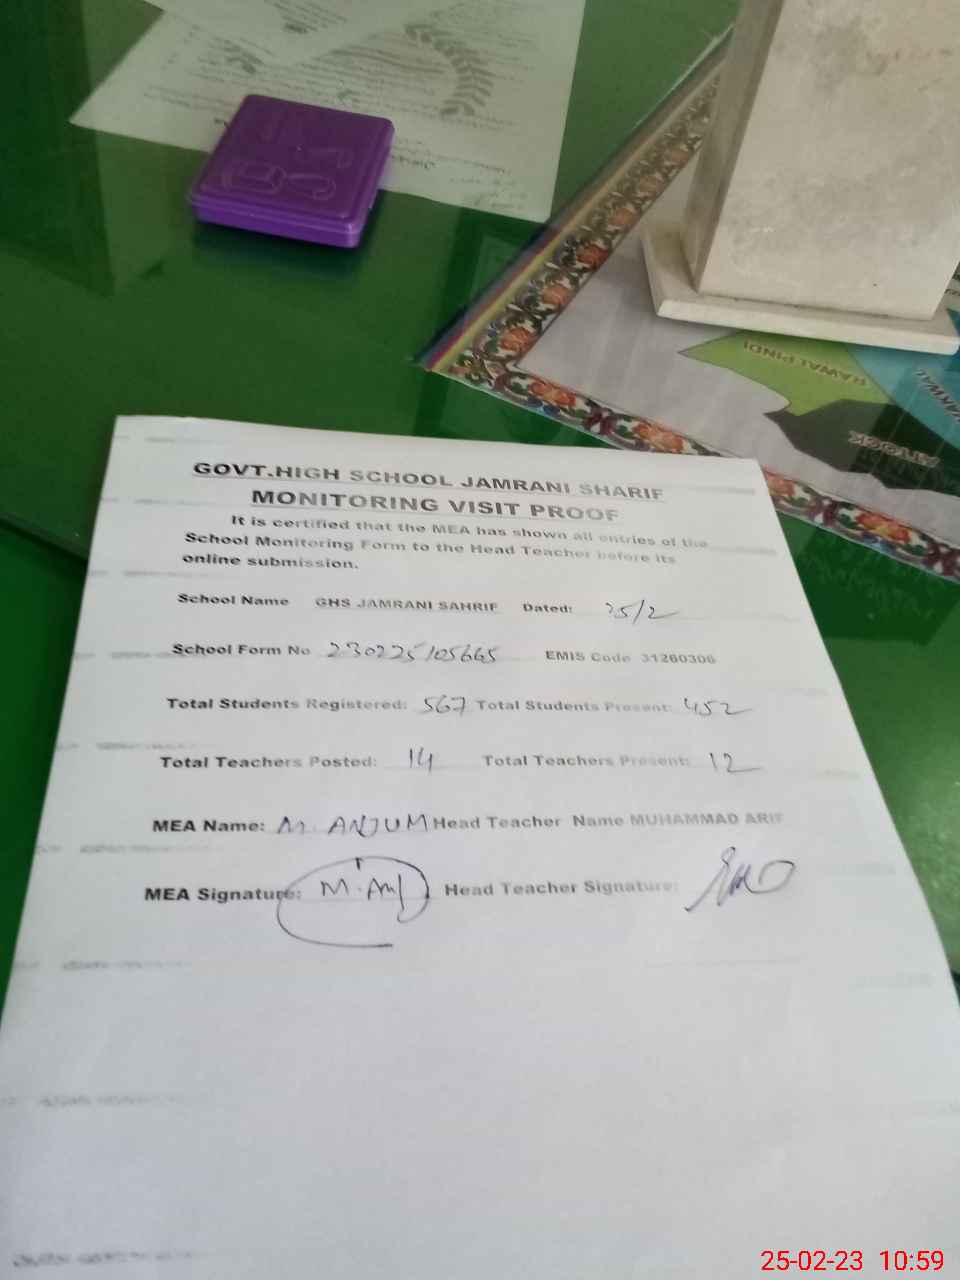 GOVT.HIGH SCHOOL JAMRANI SHARIF
MONITORING VISIT PROOF
It is certified that the MEA has shown all entries of the
School Monitoring Form to the Head Teacher before its
online submission.
School Name GHS JAMRANI SAHRIF Dated: 25/2
School Form No 230225105665 EMIS Code 31260306
Total Students Registered: 567 Total Students Present: 452
Total Teachers Posted: 14 Total Teachers Present: 12
MEA Name: M. ANJUM Head Teacher Name MUHAMMAD ARIF
MEA Signature: M. Anj Head Teacher Signature:
RAWALPINDI
ATTOCK
25-02-23 10:59